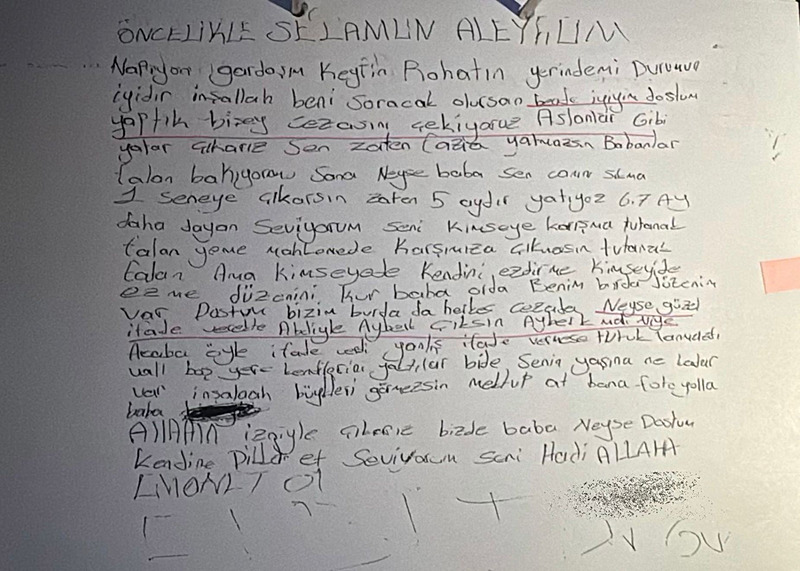 ÖNCELİKLE SELAMUN ALEYKUM
Napıyon gardaşım Keyfin Rahatın yerindemi Durumun
iyidir inşallah beni soracak olursan bende iyiyim dostum
yaptık bişey cezasını çekiyoruz Aslanlar Gibi
yatar çıkarız Sen zaten fazla yatmazsın Babanlar
falan bakıyorum Sana Neyse baba Sen canın sıkma
1 Seneye çıkarsın zaten 5 aydır yatıyoz 6.7 AY
daha dayan Seviyorum seni Kimseye karışma tutanak
falan yeme mahkemede Karşımıza çıkmasın tutanak
falan Ama Kimseyede Kendini ezdirme Kimseyide
ezme düzenini Kur baba orda Benim burda düzenim
var Dostum bizim burda da herkes cezada Neyse güzel
ifade Abdiyle Ayberk çıksın Ayberk niye
Acaba öyle ifade verdi yanlış ifade vermese tutuklanmazdı
vall boş yere yattılar bide Senin yaşına ne kadar
var inşalaah büyükleri görmezsin mektup at bana foto yolla
baba
ALLAHIN izniyle çıkarız bizde baba Neyse Dostum
Kendine Dikkat et Seviyorum seni Hadi ALLAHA
EMANET Ol